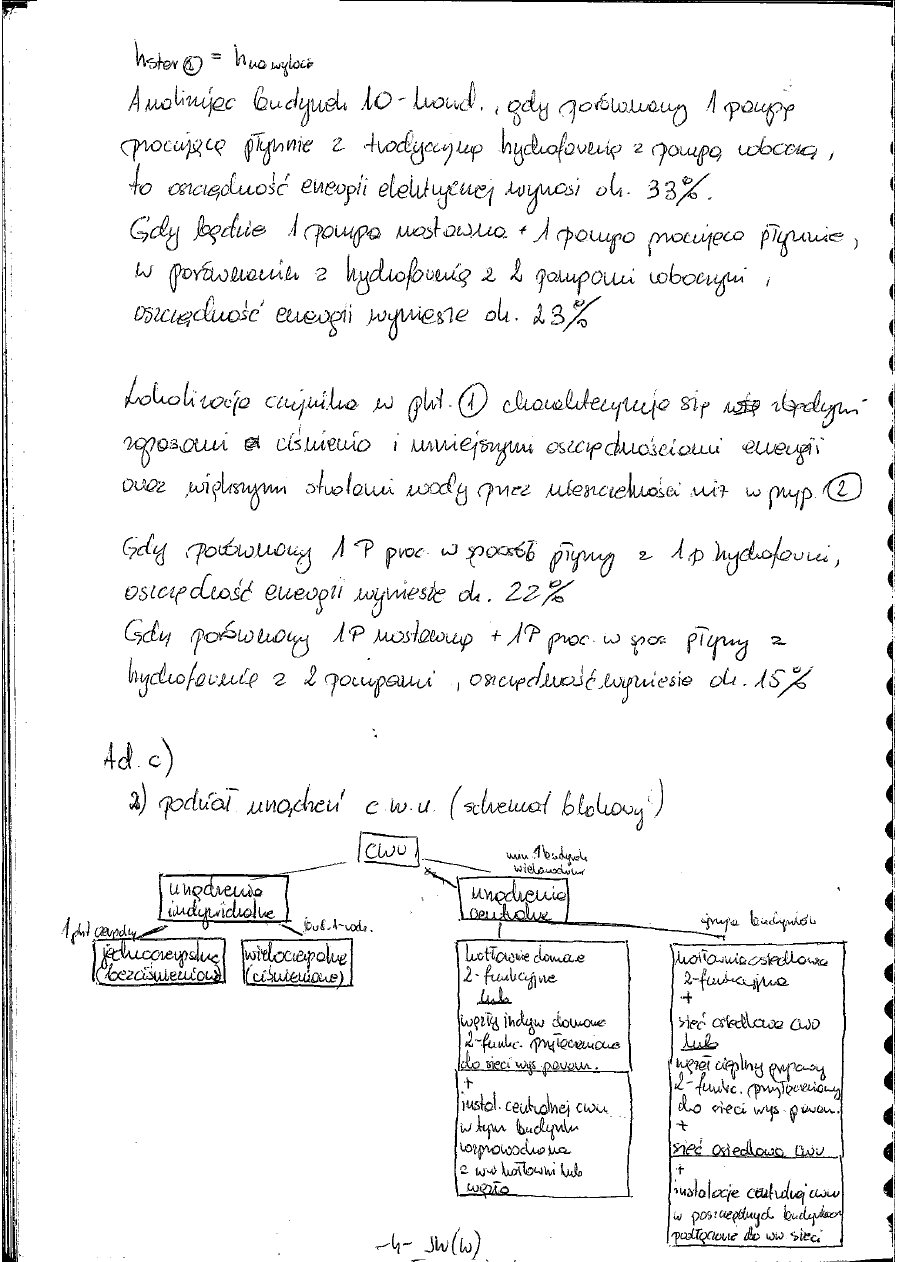 hster ① = hna wylocie
Analizując budynek 10-kond., gdy porównamy 1 pompę
pracującą płynnie z tradycyjną hydrofornią z pompą roboczą,
to oszczędność energii elektrycznej wynosi ok. 33%.
Gdy będzie 1 pompa nastawna + 1 pompa pracująca płynnie,
w porównaniu z hydrofornią z 2 pompami roboczymi,
oszczędność energii wyniesie ok. 23%
Lokalizacja czujnika w pkt. ① charakteryzuje się zbędnymi
ciśnienia i mniejszymi oszczędnościami energii
oraz większymi stratami wody przez nieszczelności niż w przyp. ②
Gdy porównamy 1P prac. w sposób płynny z 1p hydroforni,
oszczędność energii wyniesie ok. 22%
Gdy porównamy 1P nastawną + 1P prac. w spos płynny z
hydrofornią z 2 pompami, oszczędność wyniesie ok. 15%
Ad. c)
2) podział urządzeń c.w.u. (schemat blokowy)
CWU
min. 1 budynek
wielorodzinny
urządzenia
indywidualne
urządzenia
centralne
1 pkt czerpalny
bud. 1-rodz.
grupa budynków
jednoczerpalne
(bezciśnieniowe)
wieloczerpalne
(ciśnieniowe)
kotłownie domowe
2-funkcyjne
lub
węzły indyw domowe
2-funkc. przyłączone
do sieci wys param.
+
instal. centralnej cwu
w tym budynku
rozprowadzona
z ww kotłowni lub
węzła
kotłownia osiedlowa
2-funkcyjna
+
sieć osiedlowa cwu
lub
węzeł cieplny grupowy
2-funkc. przyłączony
do sieci wys. param.
+
sieć osiedlowa cwu
+
instalacje centralnej cwu
w poszczególnych budynkach
podłączone do ww sieci
-4- JW(W)